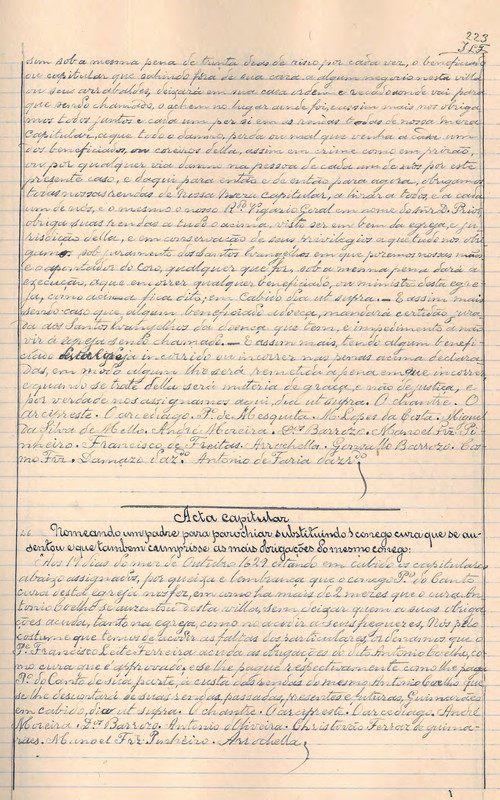 223
J.L.F.
sim sob a mesma pena de trinta dias de risco, por cada vez, o beneficiado
ou capitular que sahindo fora de sua caza a algum negocio nesta villa
ou seus arrabaldes, deixará em sua casa ordem e recado onde vai para
que sendo chamado, o achem no lugar onde foi, e assim mais nos obriga
mos todos juntos e cada um por si em as rendas todas de nossa meza
capitular, a que todo o damno, perda ou mal que venha a cada um
dos beneficiados, ou coreiros della, assim em crime como em prizão,
ou por qualquer via damno na pessoa de cada um de nós por este
presente caso, e daqui para então e de então para agora, obrigamos
todas nossas rendas de nossa Meza Capitular, a livrar a todos, e a cada
um de nós, e o mesmo o nosso Rdo Vigario Geral em nome do Snr D. Prior,
obriga suas rendas a tudo o acima, visto ser em bem da egreja, e ju
risdicção della, e em conservação de seus privilegios a que tudo nos obri
gamos sob juramento dos Santos Evangelhos em que pozemos nossas mãos
e o apontador do Coro, qualquer que for, sob a mesma pena dará a
execução, a que em correr qualquer beneficiado, ou ministro desta egre
ja, como acima fica dito; em Cabido dia ut supra. — E assim mais
sendo caso que algum beneficiado adoeça, mandará certidão jura
da aos Santos Evangelhos da doença que tem, e impedimento a não
vir á egreja sendo chamado. — E assim mais, tendo algum benefi
ciado desta Egreja incorrido ou incorrer nas penas acima declara
das, em modo algum lhe será remetida a pena em que incorreo
e quando se trate della será materia de graça, e não de justiça, e
por verdade nos assignamos aqui, dia ut supra. O chantre. O
arcipreste. O arcediago. Po de Mesquita. Ml Lopes da Costa. Miguel
da Silva de Mello. André Moreira. Dos Barrozo. Manoel Frz Pi
nheiro. Francisco de Freitas. Arrochella. Gonsallo Barrozo. Cos
mo Frz. Damazo Vaz. Antonio de Faria
Acta capitular
Nomeando um padre para parochiar substituindo o conego cura que se au
sentou e que tambem cumprisse as mais obrigações do mesmo conego:
Aos 12 dias do mez de Outubro 1642 estando em cabido os capitulares
abaixo assignados, por queixa e lembrança que o conego Po do Canto
cura desta egreja nos fez, em como ha mais de 2 mezes que o cura An
tonio Coelho se auzentou desta villa, sem deixar quem a suas obriga
ções acuda, tanto na egreja, como no acodir a seus freguezes, Nós pelo
costume que temos de acodir as faltas dos particulares ordenamos que o
Pe Francisco Leite Ferreira acuda as obrigações do dito Antonio Coelho, co
mo cura que é approvado, e se lhe pague respectivamente como lhe paga
Po do Canto de sua parte, á custa das rendas do mesmo Antonio Coelho que
se lhe descontará de suas rendas, passadas, presentes e futuras, Guimarães
em cabido, dia ut supra. O chantre. O arcipreste. O arcediago. André
Moreira. Dos Barrozo. Antonio d'Oliveira. Christovão Ferraz de guima
rães. Manoel Frz Pinheiro. Arrochella